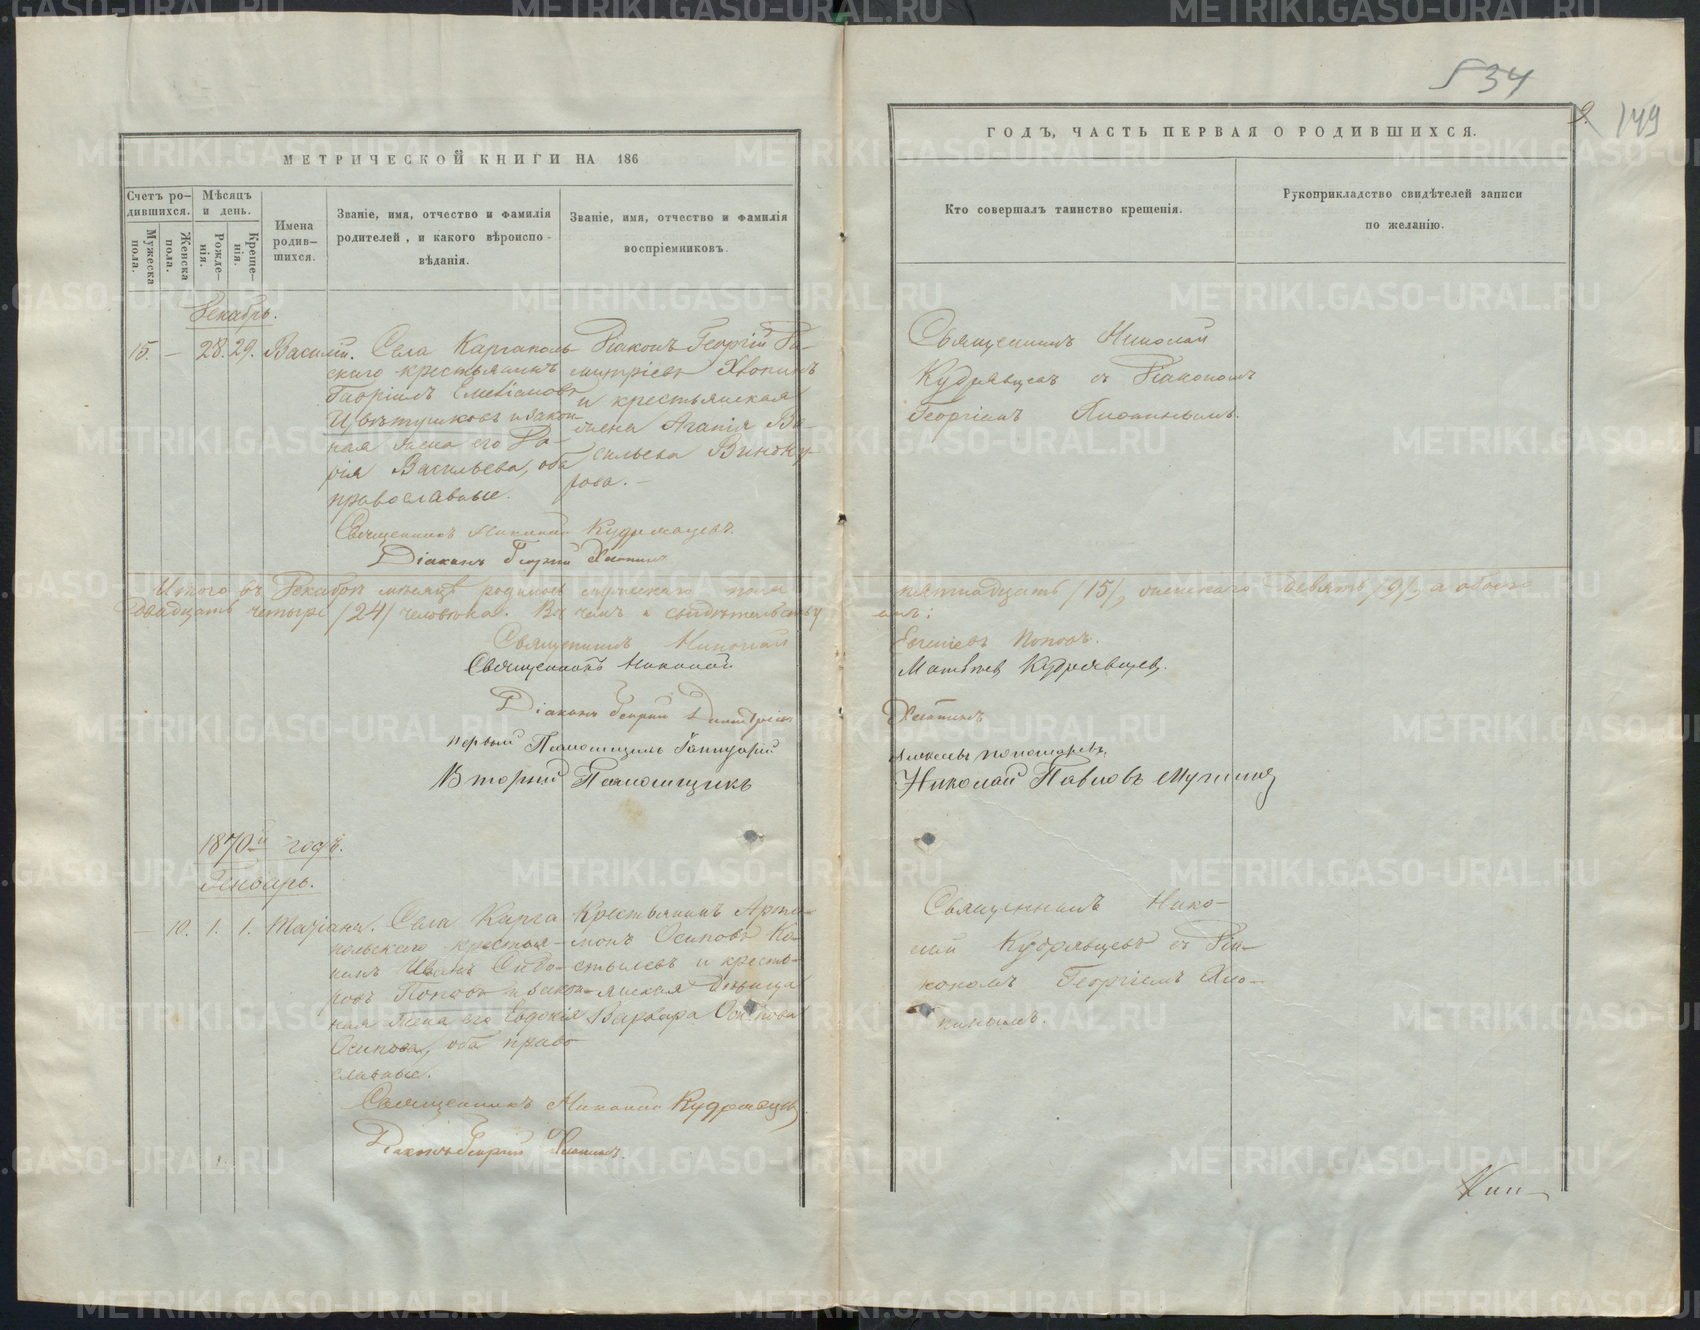 534
149
МЕТРИЧЕСКОЙ КНИГИ НА 186
ГОДЪ, ЧАСТЬ ПЕРВАЯ О РОДИВШИХСЯ.
Счетъ ро-
дившихся.
Мужеска пола.
Женска пола.
Мѣсяцъ
и день.
Рожде-
нія.
Креще-
нія.
Имена
родив-
шихся.
Званіе, имя, отчество и фамилія
родителей, и какого вѣроиспо-
вѣданія.
Званіе, имя, отчество и фамилія
воспріемниковъ.
Кто совершалъ таинство крещенія.
Рукоприкладство свидѣтелей записи
по желанію.
Декабрь.
15. — 28. 29. Василій.
Села Каргаполь-
скаго крестьянинъ
Гавріилъ
Цвѣтушковъ и закон-
ная жена его Да-
рія Васильева, оба
православные.
Діаконъ Георгій Ди-
митріевъ Хлопинъ
и крестьянская
жена Агапія Ва-
сильева Виноку-
рова.
Священникъ Николай
Кудрявцевъ съ Діакономъ
Георгіемъ Хлопинымъ.
Священникъ Николай Кудрявцевъ.
Діаконъ Георгій Хлопинъ
Итого въ Декабрѣ мѣсяцѣ родилось мужескаго пола пятнадцать /15/, женскаго девять /9/, а обоего
двадцать четыре /24/ человѣка. Въ чемъ и свидѣтельству
емъ:
Священникъ Николай Евгеніевъ Поповъ.
Священникъ Николай Матвѣевъ Кудрявцевъ.
Діаконъ Георгій Димитріевъ Хлопинъ
первый Псаломщикъ Алексѣй Пономаревъ
Вторый Псаломщикъ Николай Павловъ
1870й годъ.
Январь.
— 10. 1. 1.
Села Карга
польскаго крестья-
нинъ Иванъ Сидо-
ровъ Поповъ и закон-
ная жена его Евдокія
Осипова, оба право
славные.
Крестьянинъ Арта-
монъ Осиповъ Ко-
стылевъ и кресть-
янская дѣвица
Варвара Осипова
Священникъ Нико-
лай Кудрявцевъ съ Діа-
кономъ Георгіемъ Хло-
пинымъ.
Священникъ Николай Кудрявцевъ
Діаконъ Георгій Хлопинъ.
METRIKI.GASO-URAL.RU